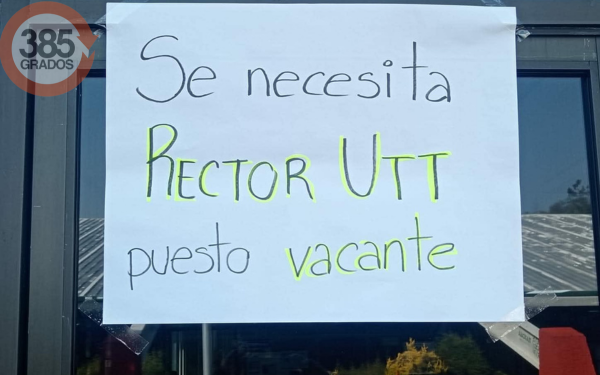 385
GRADOS
Se necesita
RECTOR UTT
puesto vacante